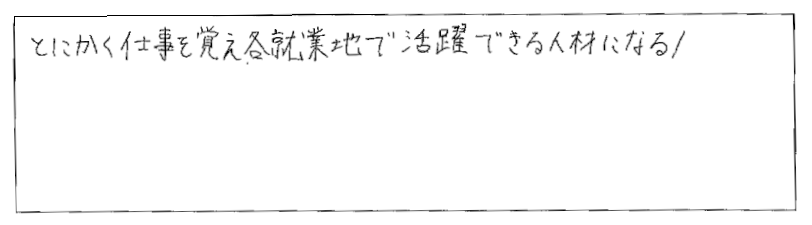 とにかく仕事を覚え各就業地で活躍できる人材になる!